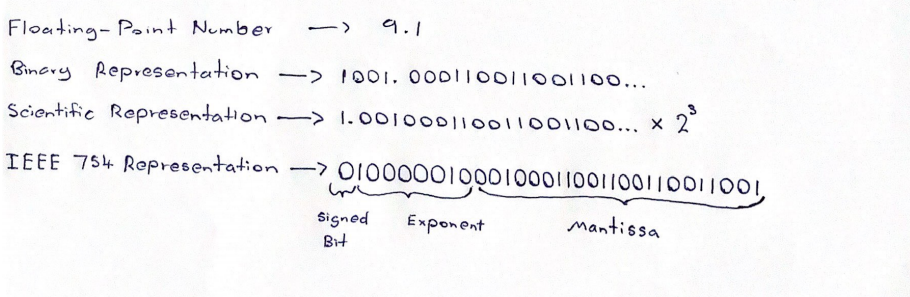 Floating-Point Number → 9.1
Binary Representation → 1001.000110011001100...
Scientific Representation → 1.001000110011001100... × 2³
IEEE 754 Representation → 01000001000100011001100110011001
Signed Bit
Exponent
Mantissa